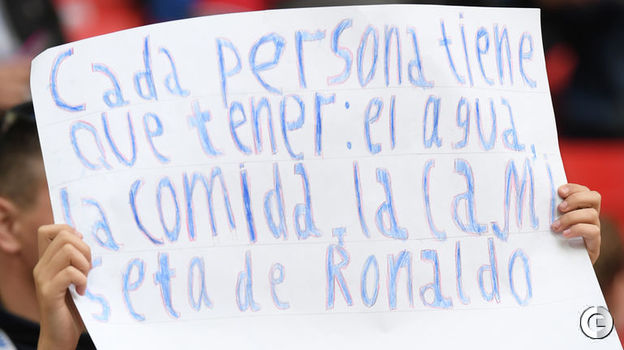 Cada persona tiene
que tener: el agua,
la comida, la cami
seta de Ronaldo